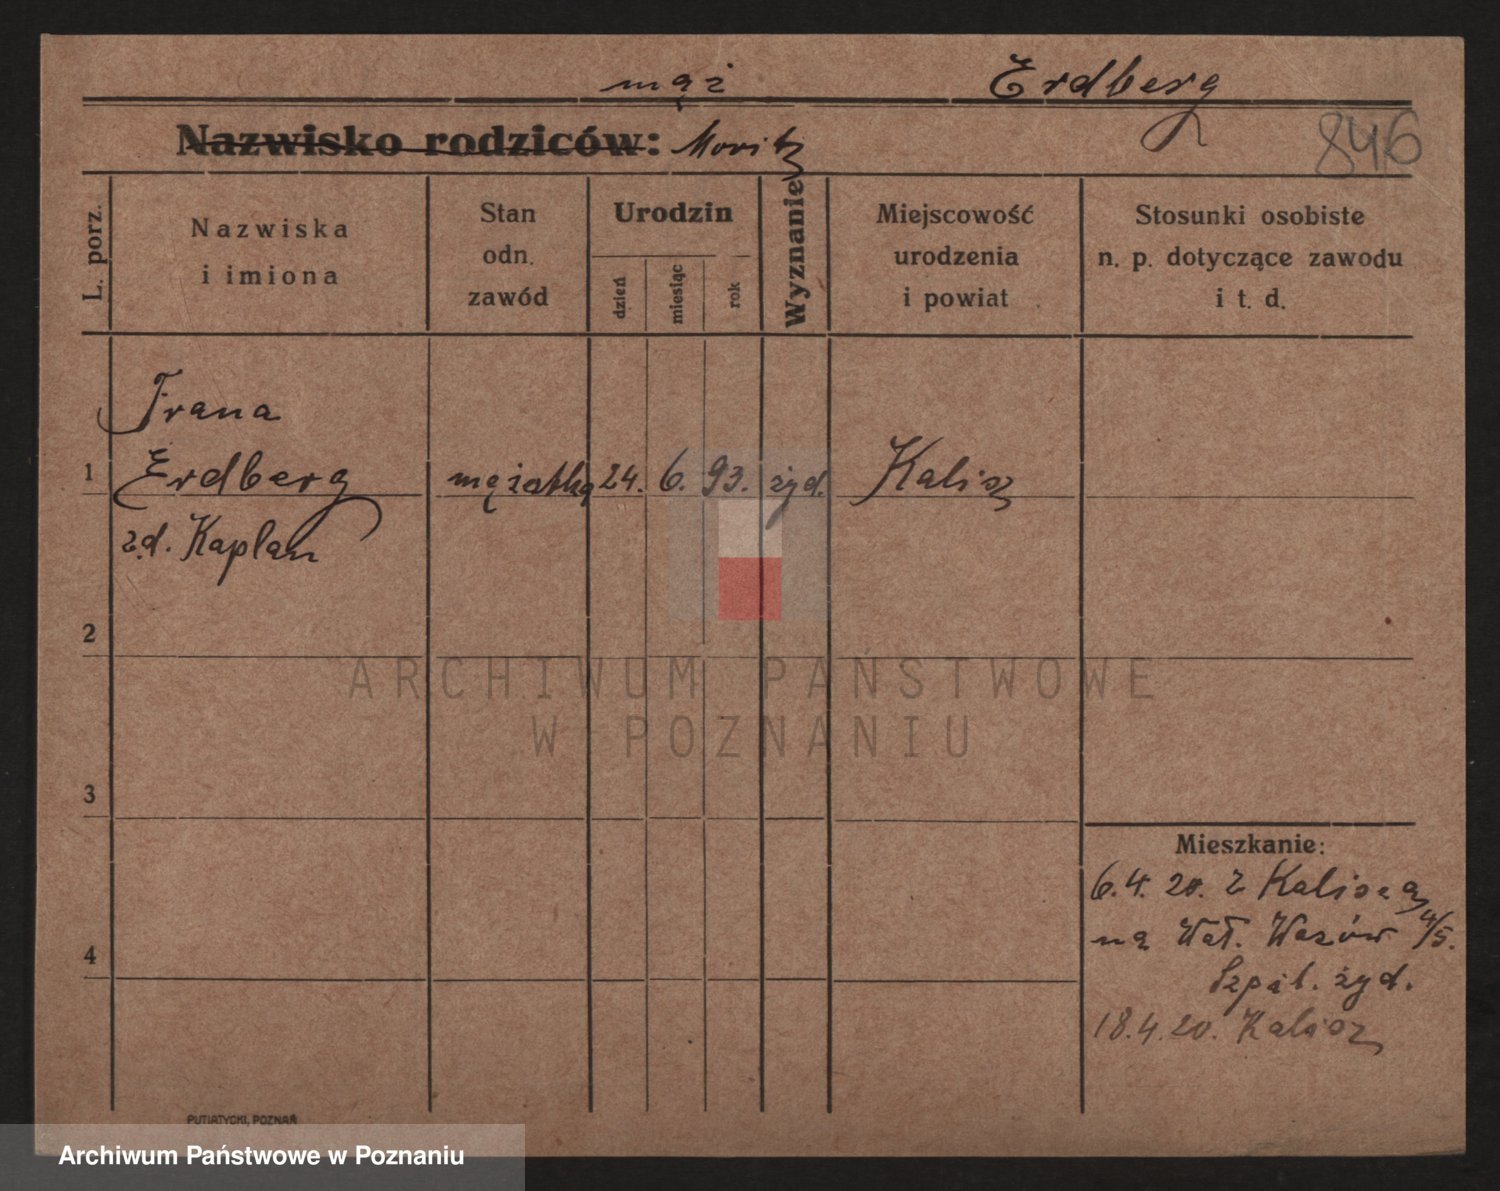 mąż Erdberg
Nazwisko rodziców: Moritz
846
L. porz.
Nazwiska
i imiona
Stan
odn.
zawód
Urodzin
dzień
miesiąc
rok
Wyznanie
Miejscowość
urodzenia
i powiat
Stosunki osobiste
n. p. dotyczące zawodu
i t. d.
Frana
1 Erdberg mężatka 24. 6. 93. żyd. Kalisz
zd. Kaplan
2
3
4
Mieszkanie:
6.4.20. z Kalisza
na Wał. Wazów 4/5.
Szpit. żyd.
18.4.20. Kalisz
ARCHIWUM PAŃSTWOWE
W POZNANIU
PUTIATYCKI, POZNAŃ
Archiwum Państwowe w Poznaniu